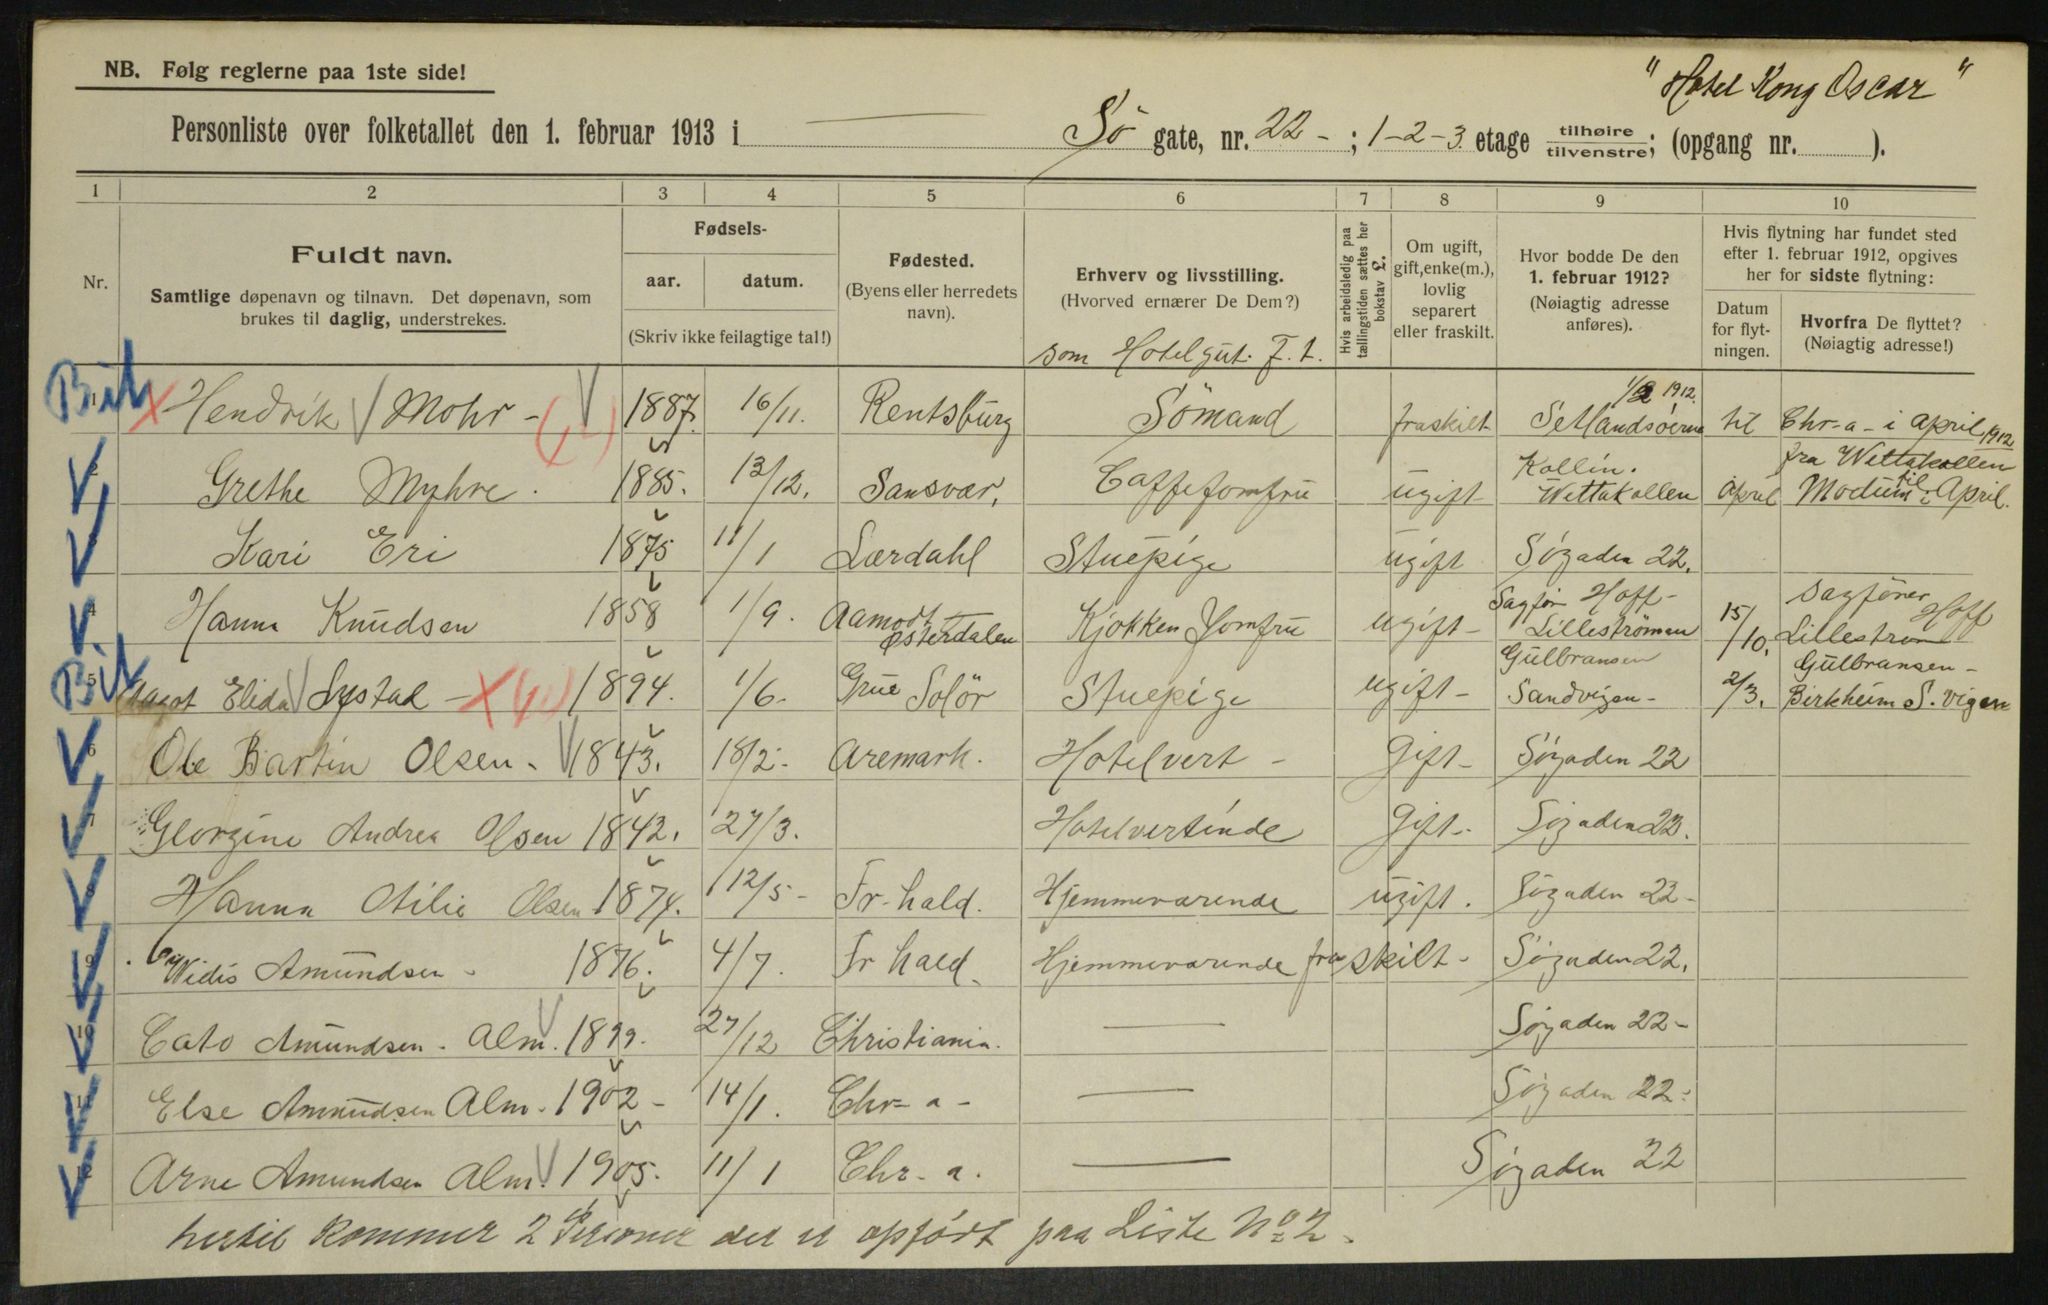 NB. Følg reglerne paa 1ste side!
"Hotel Kong Oscar"
Personliste over folketallet den 1. februar 1913 i — Sö gate, nr. 22 - ; 1-2-3 etage tilhøire tilvenstre; (opgang nr. ).
1 2 3 4 5 6 7 8 9 10
Nr.
Fuldt navn.
Samtlige døpenavn og tilnavn. Det døpenavn, som brukes til daglig, understrekes.
Fødsels-
aar. datum.
(Skriv ikke feilagtige tal!)
Fødested.
(Byens eller herredets navn).
Erhverv og livsstilling.
(Hvorved ernærer De Dem?)
som Hotelgut. F. t.
Hvis arbeidsledig paa tællingstiden sættes her bokstav L.
Om ugift, gift, enke(m.), lovlig separert eller fraskilt.
Hvor bodde De den 1. februar 1912?
(Nøiagtig adresse anføres).
Hvis flytning har fundet sted efter 1. februar 1912, opgives her for sidste flytning:
Datum for flytningen.
Hvorfra De flyttet?
(Nøiagtig adresse!)
1 Hendrik Mohr - 1887. 16/11. Rentsburg Sömand fraskilt 1/2 1912. Setlandsöerne til Chr-a- i april 1912
2 Grethe Myhre. 1885. 13/12. Sansvær. Caffejomfru ugift Kollin. Wettakollen April fra Wettakollen til Modum i April.
3 Kari Eri 1875 11/1 Lærdahl Stuepige ugift Søgaden 22.
4 Hanna Knudsen 1858 1/9. Aamodt Østerdalen Kjøkken Jomfru ugift - Sagfør Hoff - Lilleströmmen 15/10. Sagfører Hoff Lillestrøm
5 Elida Systad - 1894. 1/6. Grue Solör Stuepige ugift - Gulbransen Sandvigen - 2/3. Gulbransen - Birkheim S. vigen
6 Ole Bartin Olsen - 1843. 18/2 - Aremark. Hotelvert - Gift - Søgaden 22
7 Georgine Andrea Olsen 1842. 27/3. Hotelvertinde Gift - Søgaden 22.
8 Hanna Otilie Olsen 1874. 12/5 - Fr-hald. Hjemmeværende ugift. Søgaden 22 -
9 Widis Amundsen - 1876. 4/7. Fr hald. Hjemmeværende fraskilt - Søgaden 22.
10 Cato Amundsen. Alm. 1899. 27/12 Christiania. — Søgaden 22 -
11 Else Amundsen Alm. 1902 - 14/1. Chr- a - — Søgaden 22 -
12 Arne Amundsen Alm. 1905. 11/1 Chr- a. — Søgaden 22
hertil kommer 2 Personer der er opført paa Liste No 2.